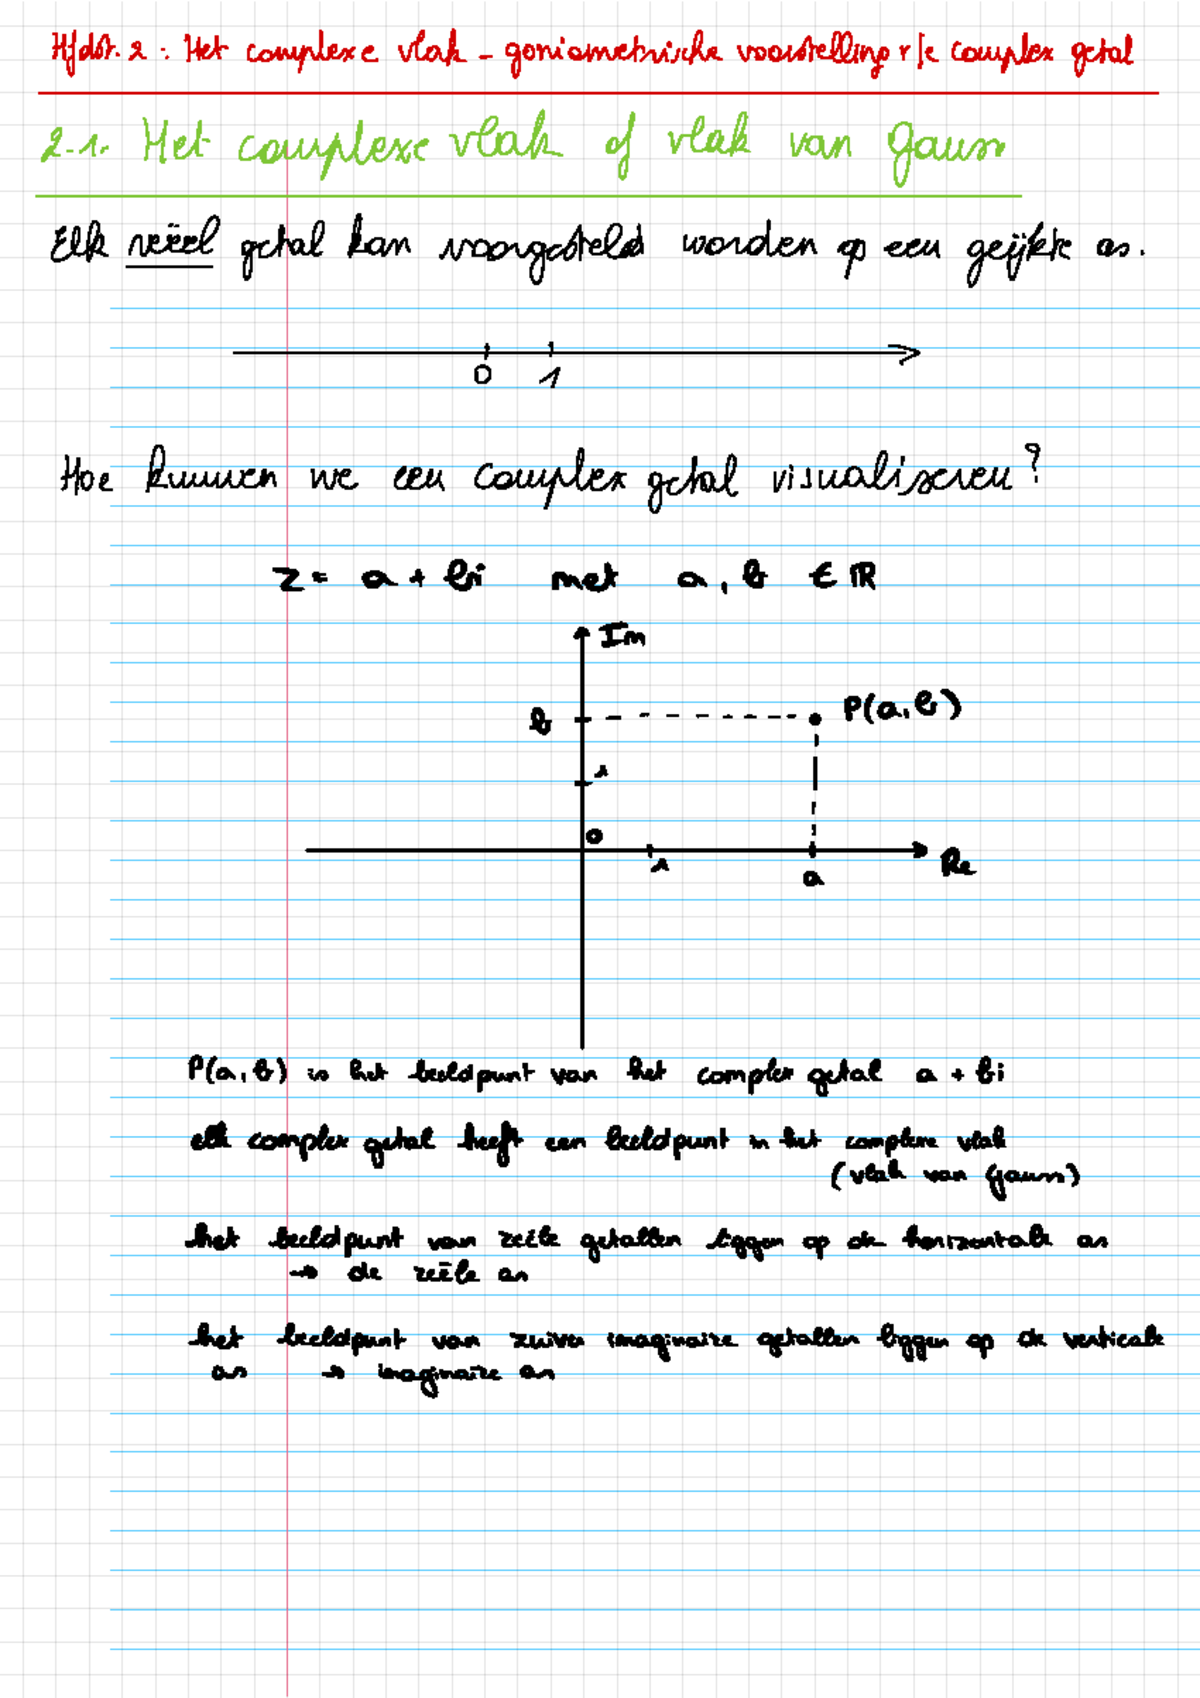 Hfdst. 2 : Het complexe vlak - goniometrische voorstelling v/e complex getal
2.1. Het complexe vlak of vlak van Gauss
Elk reëel getal kan voorgesteld worden op een geijkte as.
0 1
Hoe kunnen we een complex getal visualiseren?
z = a + bi met a, b ∈ ℝ
Im
b P(a, b)
1
0
1 a Re
P(a, b) is het beeldpunt van het complex getal a + bi
elk complex getal heeft een beeldpunt in het complexe vlak
(vlak van Gauss)
het beeldpunt van reële getallen liggen op de horizontale as
→ de reële as
het beeldpunt van zuiver imaginaire getallen liggen op de verticale
as → imaginaire as